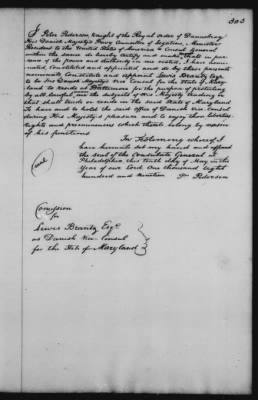 303
I Peter Pederson, Knight of the Royal Order of Dannebrog
His Danish Majesty's Privy Counsellor of Legation, Minister
Resident to the United States of America & Consul General
within the same do hereby certify and make that in per
-ance of the power and authority in me vested, I have nomi-
nated Constituted and appointed and do by these presents
nominate Constitute and appoint Lewis Brantz Esqr
to be His Danish Majesty's Vice Consul for the State of Mary
land to reside at Baltimore for the purpose of protecting
by all lawful means the subjects of His Majesty trading in
that shall trade or reside in the said State of Maryland
To have and to hold the said office of Danish vice Consul
during His Majesty's pleasure and to enjoy those liberties
rights and preeminences which thereto belong by reason
of his functions
In Testimony whereof I
have hereunto set my hand and affixed
the seal of the Consulate General at
Philadelphia this tenth day of May in the
year of our Lord one thousand eight
hundred and nineteen Pr. Pederson
Seal
Commission
for
Lewis Brantz Esqr
as Danish Vice Consul
for the State of Maryland